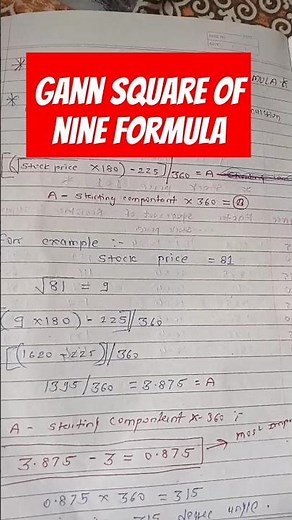 GANN SQUARE OF
NINE FORMULA
[(√stock price × 180) - 225]/360 = A
A - starting compontant × 360 = a
For example :-
stock price = 81
√81 = 9
(9 × 180) - 225/360
[(1620 - 225)]/360
1395/360 = 3.875 = A
A - starting compontent × 360 :-
3.875 - 3 = 0.875 → most imp
0.875 × 360 = 315
315 degree angle